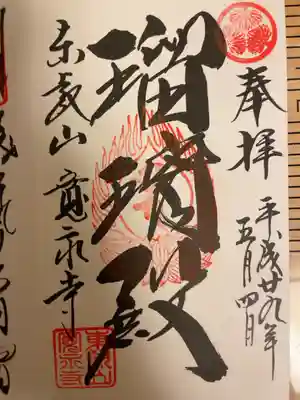 奉拝
平成廿九年
五月四日
瑠璃殿
東叡山 寛永寺